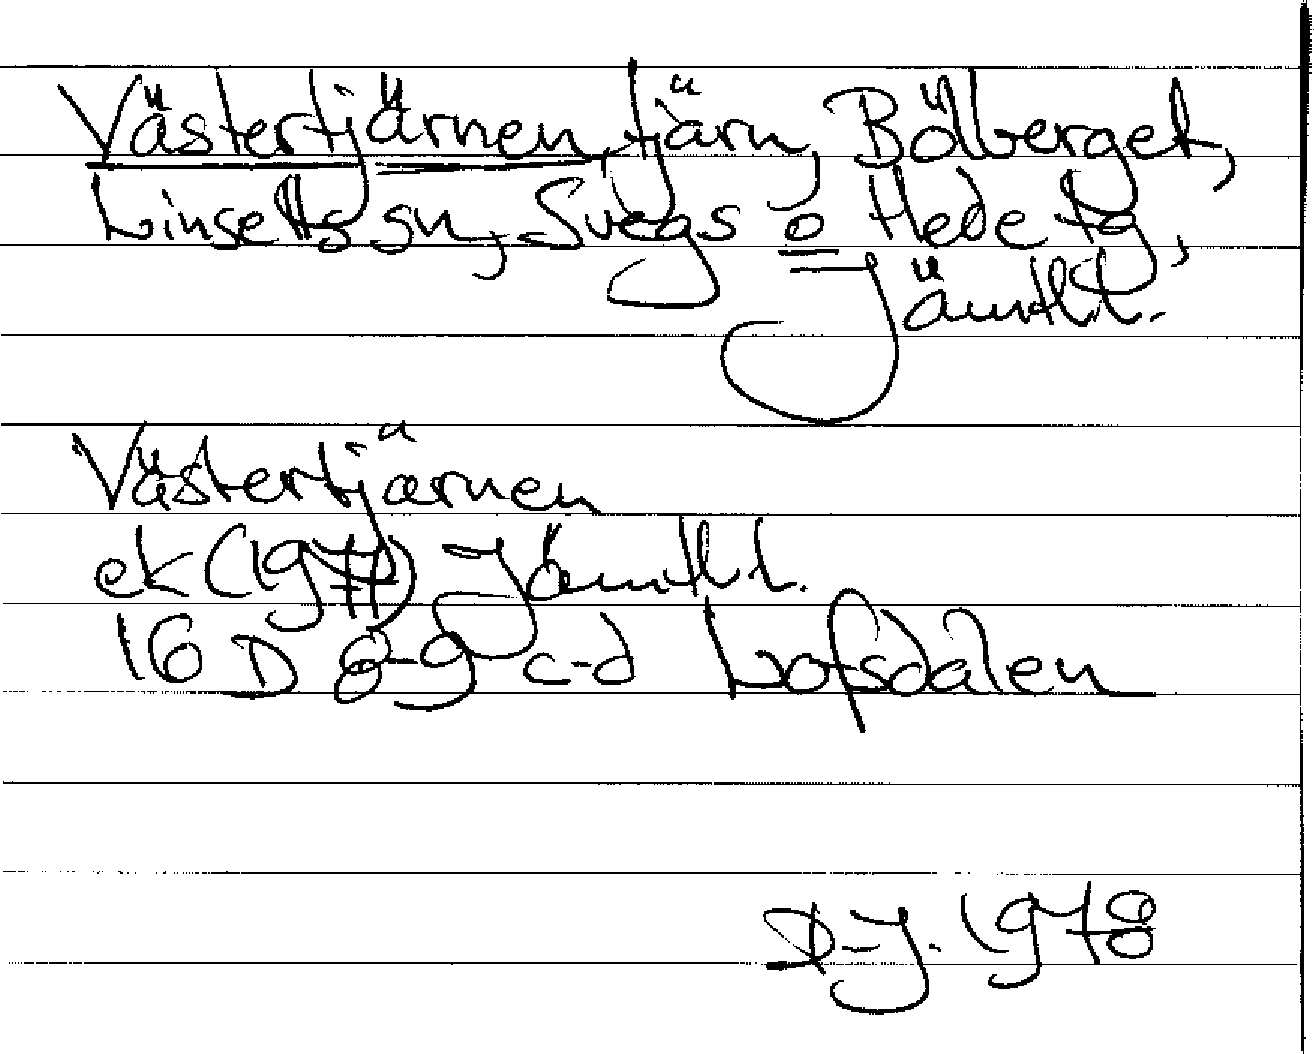 Västertjärnen, tjärn, Bölberget,
Linsells sn, Svegs o Hede tg,
Jämtl l.
Västertjärnen
ek (1977) Jämtl l.
16 D 8-9 c-d Lofsdalen
1978